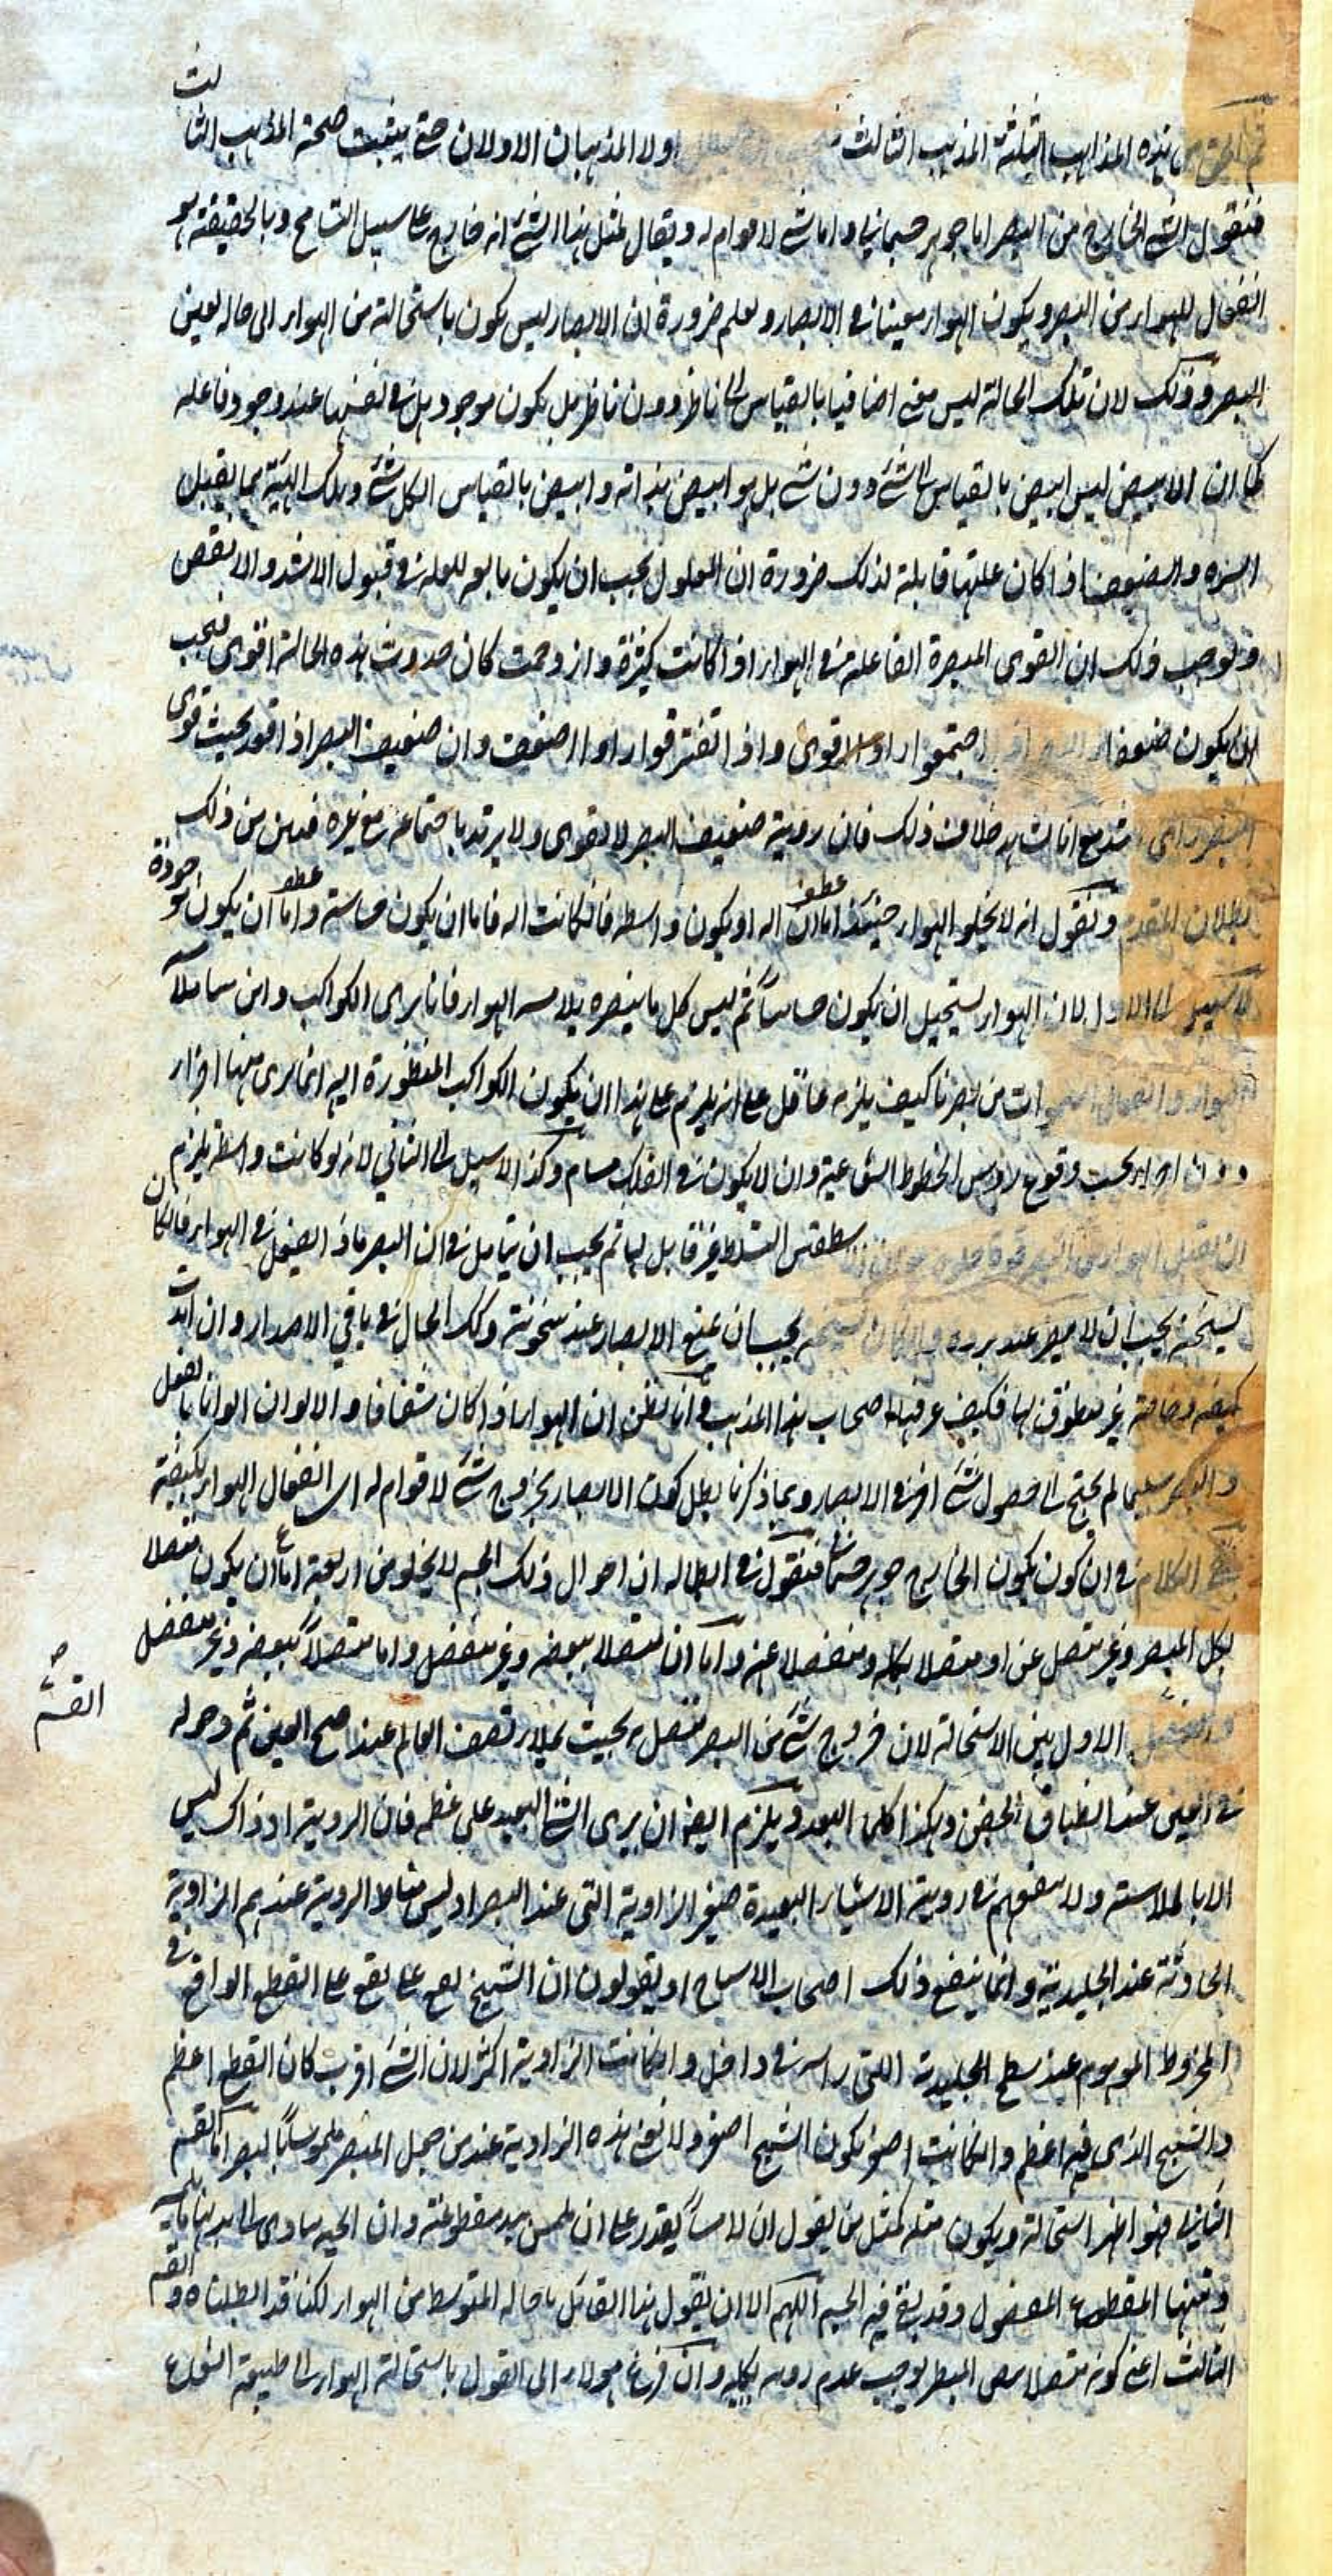 هذه المذاهب الثلثة المذهب الثالث اولا المذهبان الاولان حتى يثبت صحة المذهب الثالث
فنقول الشئ الخارج من البصر اما جوهر جسمانى واما شئ لا قوام له ويقال لمثل هذا الشئ انه خارج على سبيل التسامح وبالحقيقة هو
انفعال للهواء من البصر ويكون الهواء معينا فى الابصار ونعلم ضرورة ان الابصار ليس يكون باستحالة من الهواء الى حالة تعين
البصر وذلك لان تلك الحالة ليس معنى اضافيا بالقياس الى ناظر دون ناظر بل يكون موجودا بل فى نفسها عند وجود فاعله
كما ان الابيض ليس ابيض بالقياس الى شئ دون شئ بل هو ابيض بذاته وابيض بالقياس الى كل شئ وتلك الهيئة مما يقبل
الشدة والضعف اذا كان علتها قابلة لذلك ضرورة ان المعلول يجب ان يكون تابعه للعلة فى قبول الاشد والانقص
وتوجب ذلك ان القوى المبصرة الفاعلة فى الهواء اذا كانت كثيرة وازدحمت كان حدوث هذه الحالة اقوى فيجب
ان يكون ضعفاء اجتمعوا راوا اقوى واذا تفرقوا راوا اضعف وان ضعيف البصر اذا قعد بحيث قوى
البصر راى اشد مع انا نشاهد خلاف ذلك فان روية ضعيف البصر لا تقوى ولا يزيد باجتماعه مع غيره فتبين من ذلك
بطلان المقدم ونقول انه لا يخلو الهواء حينئذ اما ان اله او يكون واسطة فان كانت اله فاما ان يكون حاسة واما ان يكون مودة
لا سبيل الى الاول لان الهواء يستحيل ان يكون حاسا ثم ليس كل ما يبصره يلامسه الهواء فانا نرى الكواكب واين مماسة
الهواء من بصرنا كيف يلزمه عاقل على انه يلزم على هذا ان يكون الكواكب المنظورة اليه انما يرى منها اجزاء
دون اجزاء بحسب وقوع رؤس الخطوط الشعاعية وان لا يكون فى الفلك مسام وكذا لا سبيل الى الثانى لانه لو كانت واسطة يلزم
ان يقبل الهواء من البصر قوة قابل لها ثم يجب ان يتامل فى ان البصر ماذا يفعل فى الهواء فان كان
يسخنه يجب ان لا يبصر عند برده وان كان يجب ان يمنع الابصار عند سخونته وكذلك الحال فى باقى الاضداد وان اثبت
كيفية خاصة غير منطوق لها فكيف عرفها اصحاب هذا المذهب وانا نظن ان الهواء اذا كان شفافا والالوان الوانا بالفعل
والبصر سليما لم يحتج الى حصول شئ اخر فى الابصار وبما ذكرنا بطل كون الابصار بخروج شئ لا قوام له اى انفعال الهواء بكيفية
الكلام فى ان كون يكون الخارج جوهر جسمانى فنقول فى ابطاله ان احوال ذلك الجسم لا يخلو من اربعة اما ان يكون متصلا
بكل المبصر وغير متصل عن او متصلا بكله ومنفصلا عنه واما ان متصلا ببعضه وغير منفصل واما متصلا ببعضه وغير منفصل
القسم
الاول بين الاستحالة لان خروج شئ من البصر متصل بحيث يملأ نصف العالم عند فتح العين ثم دخوله
فى العين عند انطباق الجفن وهكذا كلما البعد ويلزم ايضا ان يرى الشئ البعيد على عظمه فان الروية اذ ذاك ليس
الا بالملامسة ولا ينفعهم فى روية الاشياء البعيدة صغر الزاوية التى عند البصر اذ ليس مناط الروية عندهم الزاوية
الحادثة عند الجليدية وانما ينفع ذلك اصحاب الاشباح او يقولون ان الشبح يقع على يقع على القطع الواقع فى
المخروط الموهوم عند سطح الجليدية اللتى راسه فى داخل وان كانت الزاوية اكثر لان الشئ اقرب كان القطع اعظم
والشبح الذى فيه اعظم وان كانت اصغر يكون الشبح اصغر ولا نفع هذه الزاوية عند من جعل المبصر ملموسا للبصر اما القسم
الثانى فهو اظهر استحالة ويكون مثله كمثل من يقول ان لامسا يقدر على ان يلمس بيد مقطوعة وان الحية يتادى الى بدنها مايه
ومنها المقطوع المفصول وقد بقى فيه الحس اللهم الا ان يقول هذا القائل باحالة المتوسط من الهواء لكنا قد ابطلناه والقسم
الثالث اعنى كونه متصلا ببعض المبصر يوجب عدم رويته بكليه وان فزع هولاء الى القول باستحالة الهواء الى طبيعة الشعاع